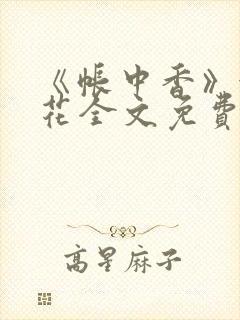 《帐中香》
花全文免費
高星麻子